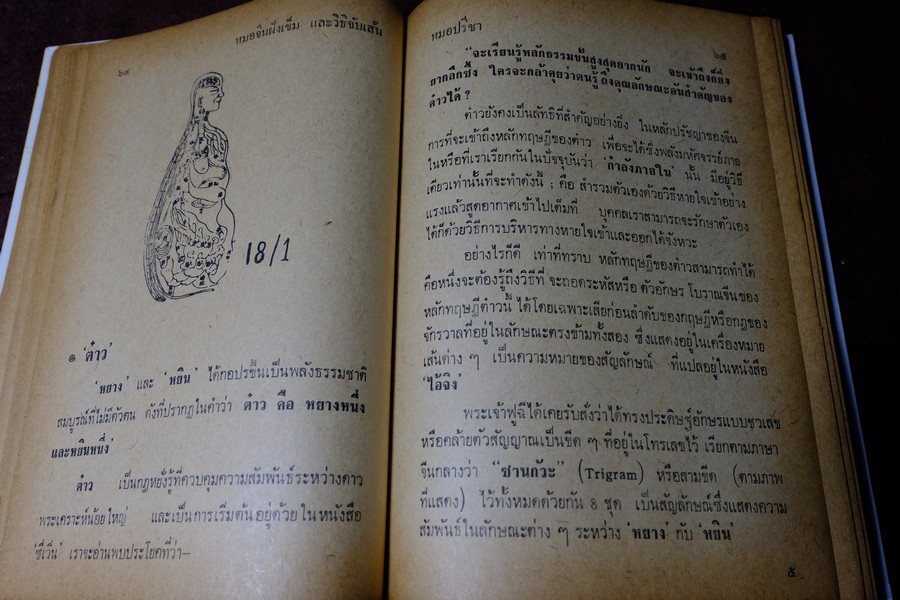 หมอจีนฝังเข็ม และวิธีจับเส้น
๖๔
18/1
๑ 'ต๋าว'
'หยาง' และ 'หยิน' ได้กอปรขึ้นเป็นพลังธรรมชาติ
สมบูรณ์ที่ไม่มีตัวตน ดังที่ปรากฏในคำว่า ต๋าว คือ หยางหนึ่ง
และหยินหนึ่ง'
ต๋าว เป็นกฎหยั่งรู้ที่ควบคุมความสัมพันธ์ระหว่างดาว
พระเคราะห์น้อยใหญ่ และเป็นการเริ่มต้นอยู่ด้วย ในหนังสือ
'ซี่เว็น' เราจะอ่านพบประโยคที่ว่า—
หมอปรีชา
๖๕
"จะเรียนรู้หลักธรรมขั้นสูงสุดยากนัก จะเข้าถึงก็ยิ่ง
ยากลึกซึ้ง ใครจะกล้าคุยว่าตนรู้ถึงคุณลักษณะอันสำคัญของ
ต๋าวได้ ?
ต๋าวยังคงเป็นลัทธิที่สำคัญอย่างยิ่ง ในหลักปรัชญาของจีน
การที่จะเข้าถึงหลักทฤษฎีของต๋าว เพื่อจะได้ซึ่งพลังมหัศจรรย์ภาย
ในหรือที่เราเรียกกันในปัจจุบันว่า 'กำลังภายใน' นั้น มีอยู่วิธี
เดียวเท่านั้นที่จะทำดังนี้ ; คือ สำรวมตัวเองด้วยวิธีหายใจเข้าอย่าง
แรงแล้วสูดอากาศเข้าไปเต็มที่ บุคคลเราสามารถจะรักษาตัวเอง
ได้ก็ด้วยวิธีการบริหารทางหายใจเข้าและออกได้จังหวะ
อย่างไรก็ดี เท่าที่ทราบ หลักทฤษฎีของต๋าวสามารถทำได้
คือหนึ่งจะต้องรู้ถึงวิธีที่ จะถอดระหัสหรือ ตัวอักษร โบราณจีนของ
หลักทฤษฎีต๋าวนี้ ได้โดยเฉพาะเสียก่อนลำดับของกฤษฎีหรือกฎของ
จักรวาลที่อยู่ในลักษณะตรงข้ามทั้งสอง ซึ่งแสดงอยู่ในเครื่องหมาย
เส้นต่าง ๆ เป็นความหมายของสัญลักษณ์ ที่แปลอยู่ในหนังสือ
'ไอ้จิง'
พระเจ้าฟูฉีได้เคยรับสั่งว่าได้ทรงประดิษฐ์อักษรแบบชวเลข
หรือคล้ายตัวสัญญาณเป็นขีด ๆ ที่อยู่ในโทรเลขไว้ เรียกตามภาษา
จีนกลางว่า "ซานกัวะ" (Trigram) หรือสามขีด (ตามภาพ
ที่แสดง) ไว้ทั้งหมดด้วยกัน 8 ชุด เป็นสัญลักษณ์ซึ่งแสดงความ
สัมพันธ์ในลักษณะต่าง ๆ ระหว่าง 'หยาง' กับ 'หยิน'
๕